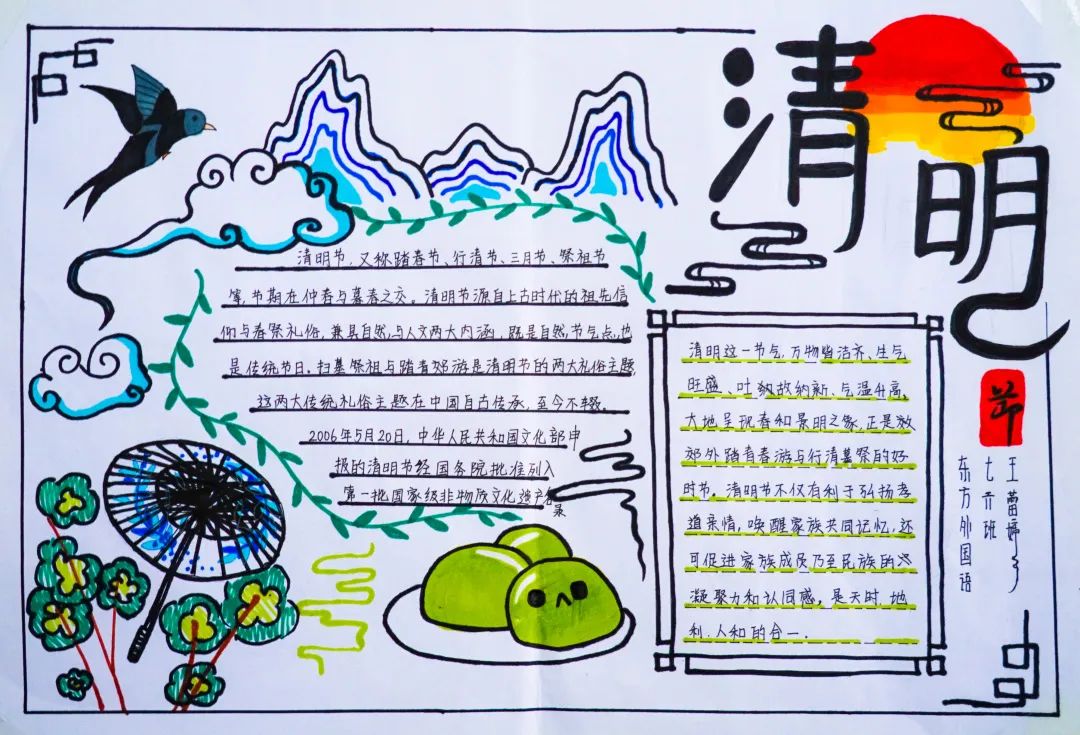 清明
节
清明节，又称踏春节、行清节、三月节、祭祖节
等，节期在仲春与暮春之交。清明节源自上古时代的祖先信
仰与春祭礼俗，兼具自然与人文两大内涵，既是自然节气点，也
是传统节日。扫墓祭祖与踏青郊游是清明节的两大礼俗主题，
这两大传统礼俗主题在中国自古传承，至今不辍。
2006年5月20日，中华人民共和国文化部申
报的清明节经国务院批准列入
第一批国家级非物质文化遗产名
录
清明这一节气，万物皆洁齐、生气
旺盛、吐故纳新、气温升高、
大地呈现春和景明之象，正是
郊外踏青春游与行清墓祭的好
时节。清明节不仅有利于弘扬孝
道亲情，唤醒家族共同记忆，还
可促进家族成员乃至民族的
凝聚力和认同感，是天时、地
利、人和的合一.
王蕾婷
班
东方外国语